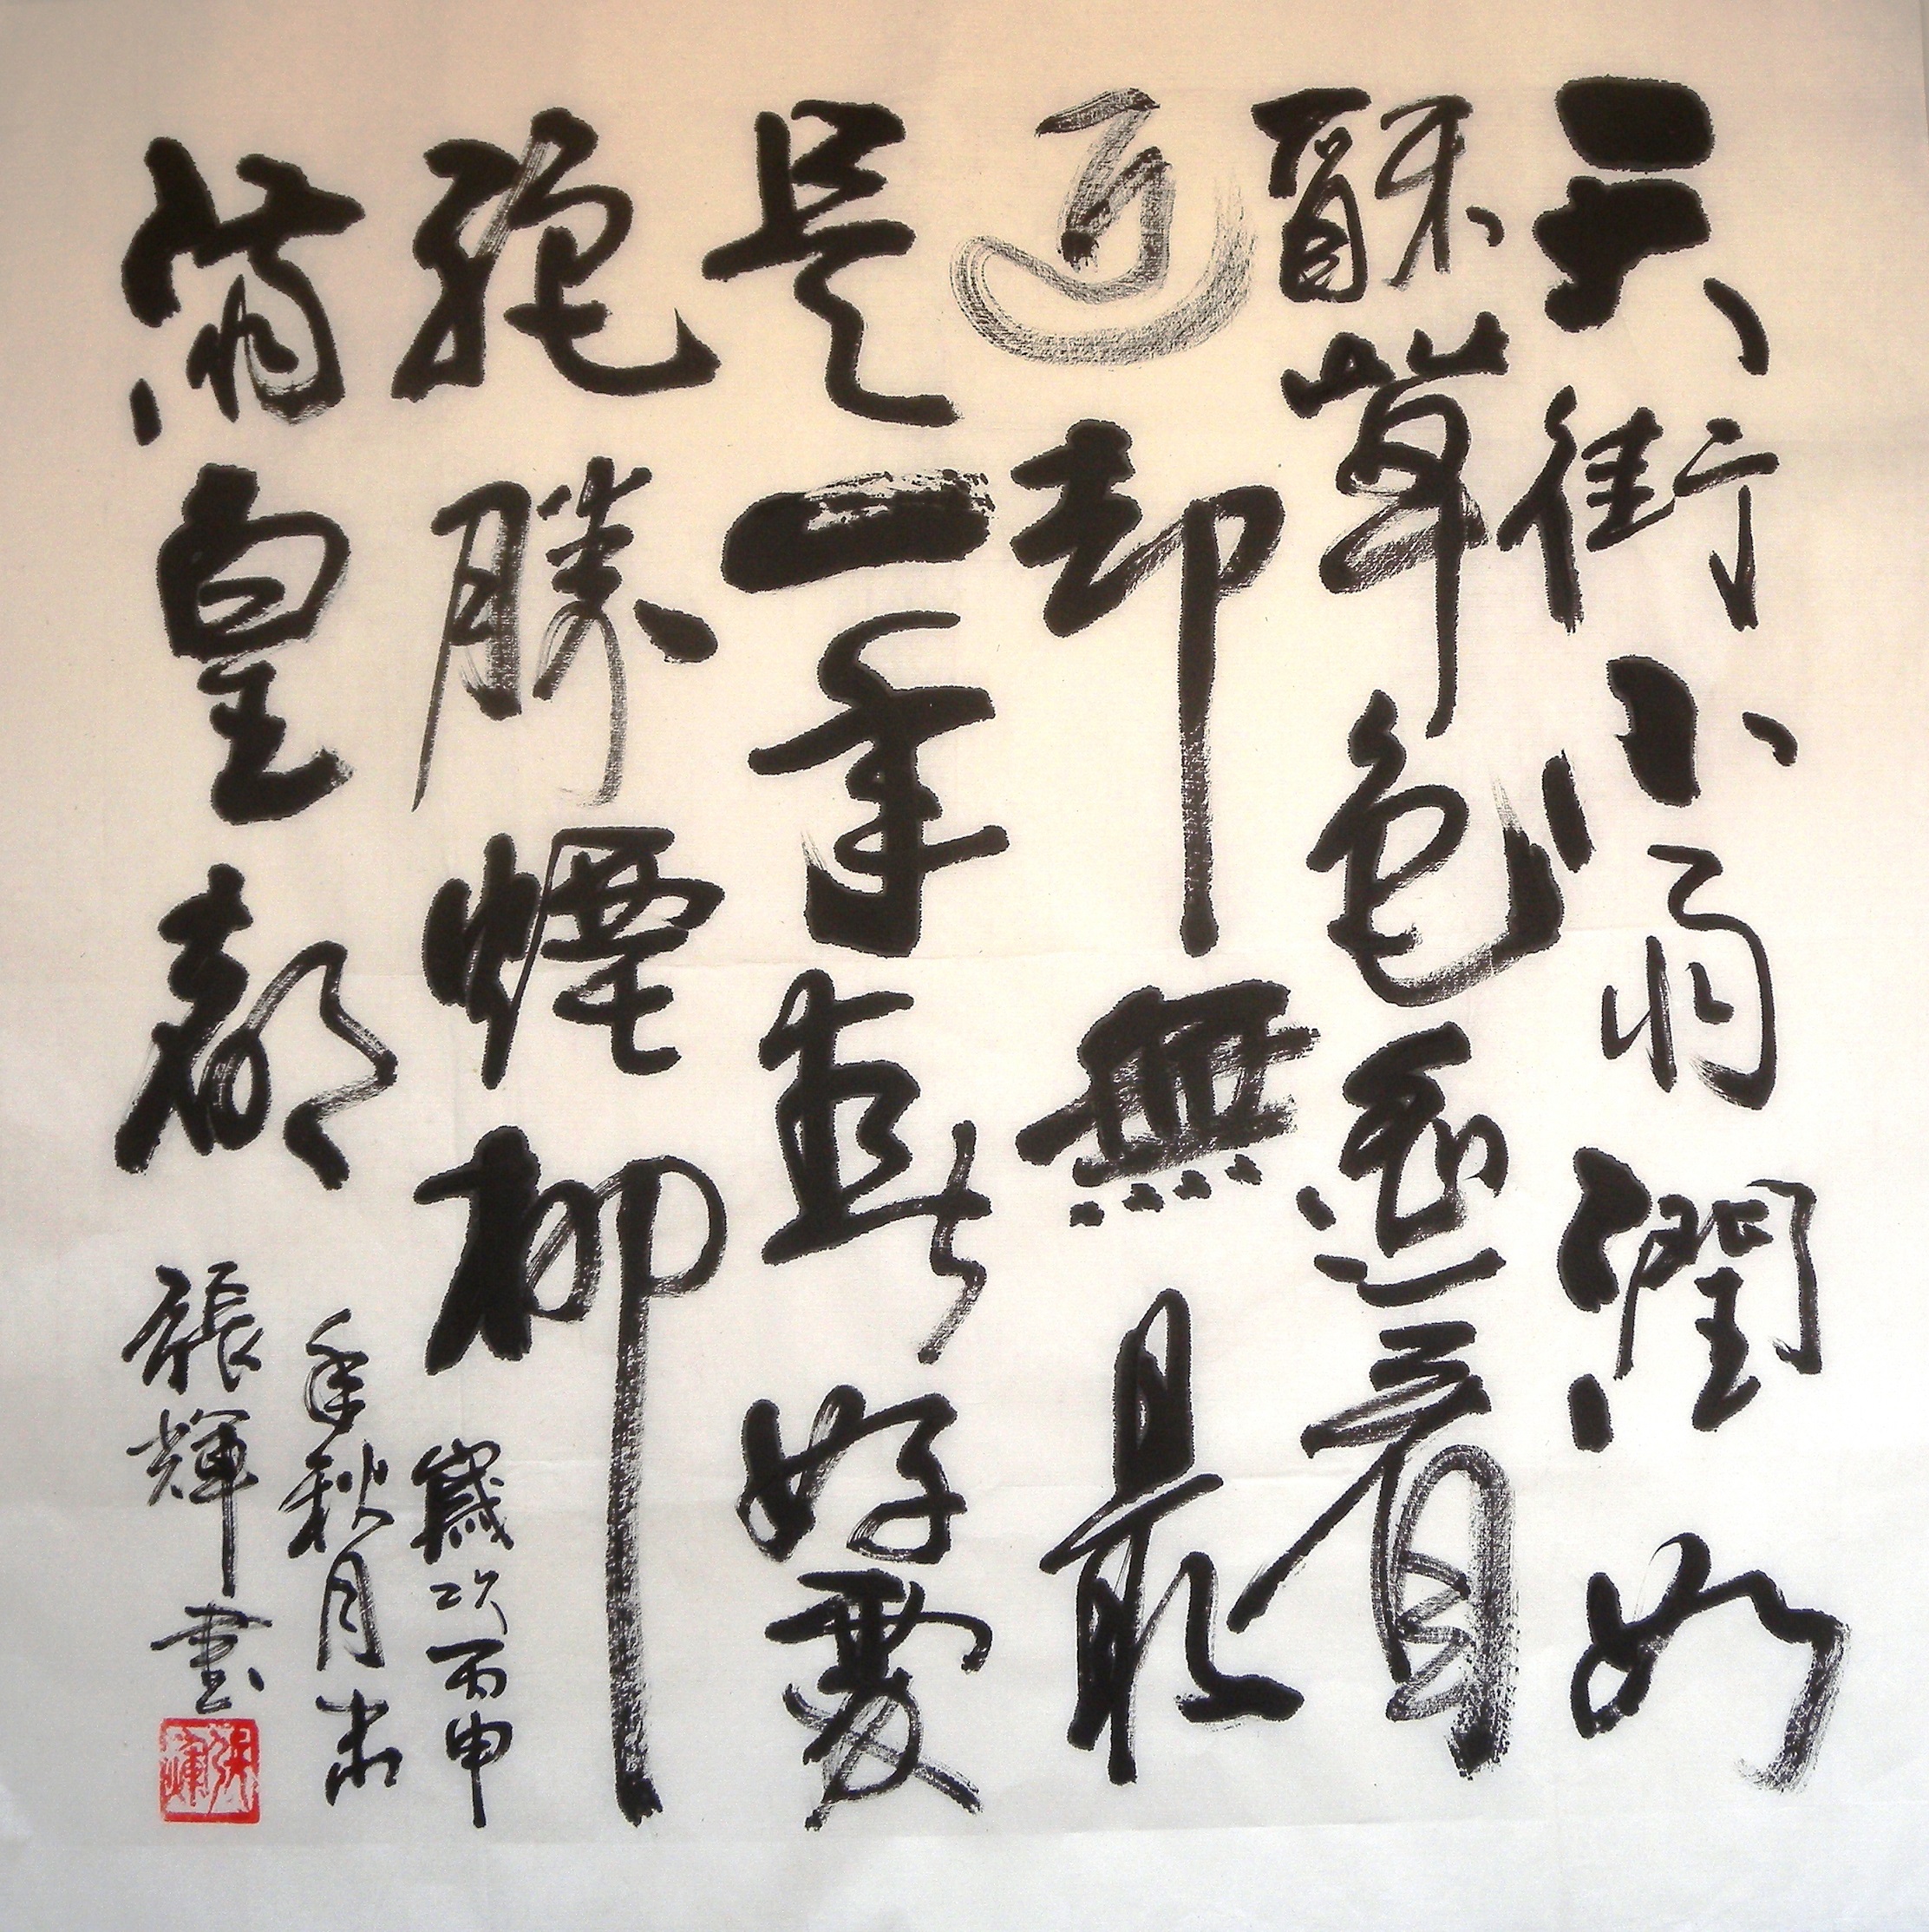 天街小雨潤如
酥草色遙看
近却無最
是一年春好處
絕勝煙柳
滿皇都
歲次丙申
年秋月末
張輝書
張輝